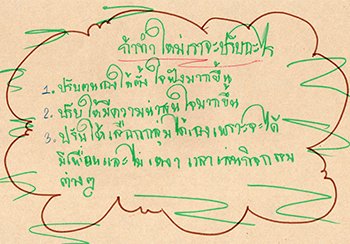 ถ้าทำใหม่เราจะปรับอะไร
1. ปรับตนเองให้ตั้งใจฟังมากขึ้น
2. ปรับให้มีความน่าสนใจมากขึ้น
3. ปรับให้เลือกกลุ่มได้เองเพราะจะได้
มีเพื่อนและไม่เหงา เวลาเล่นกิจกรรม
ต่างๆ